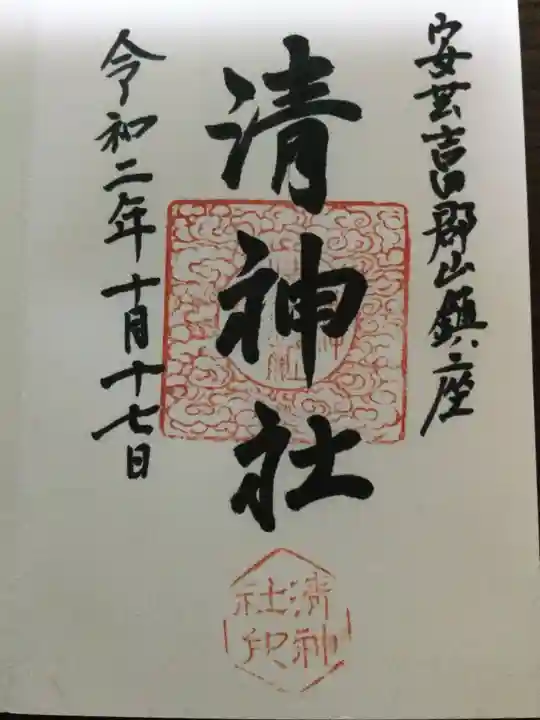 安芸吉田郡山鎮座
清神社
令和二年十月十七日
清神
社印